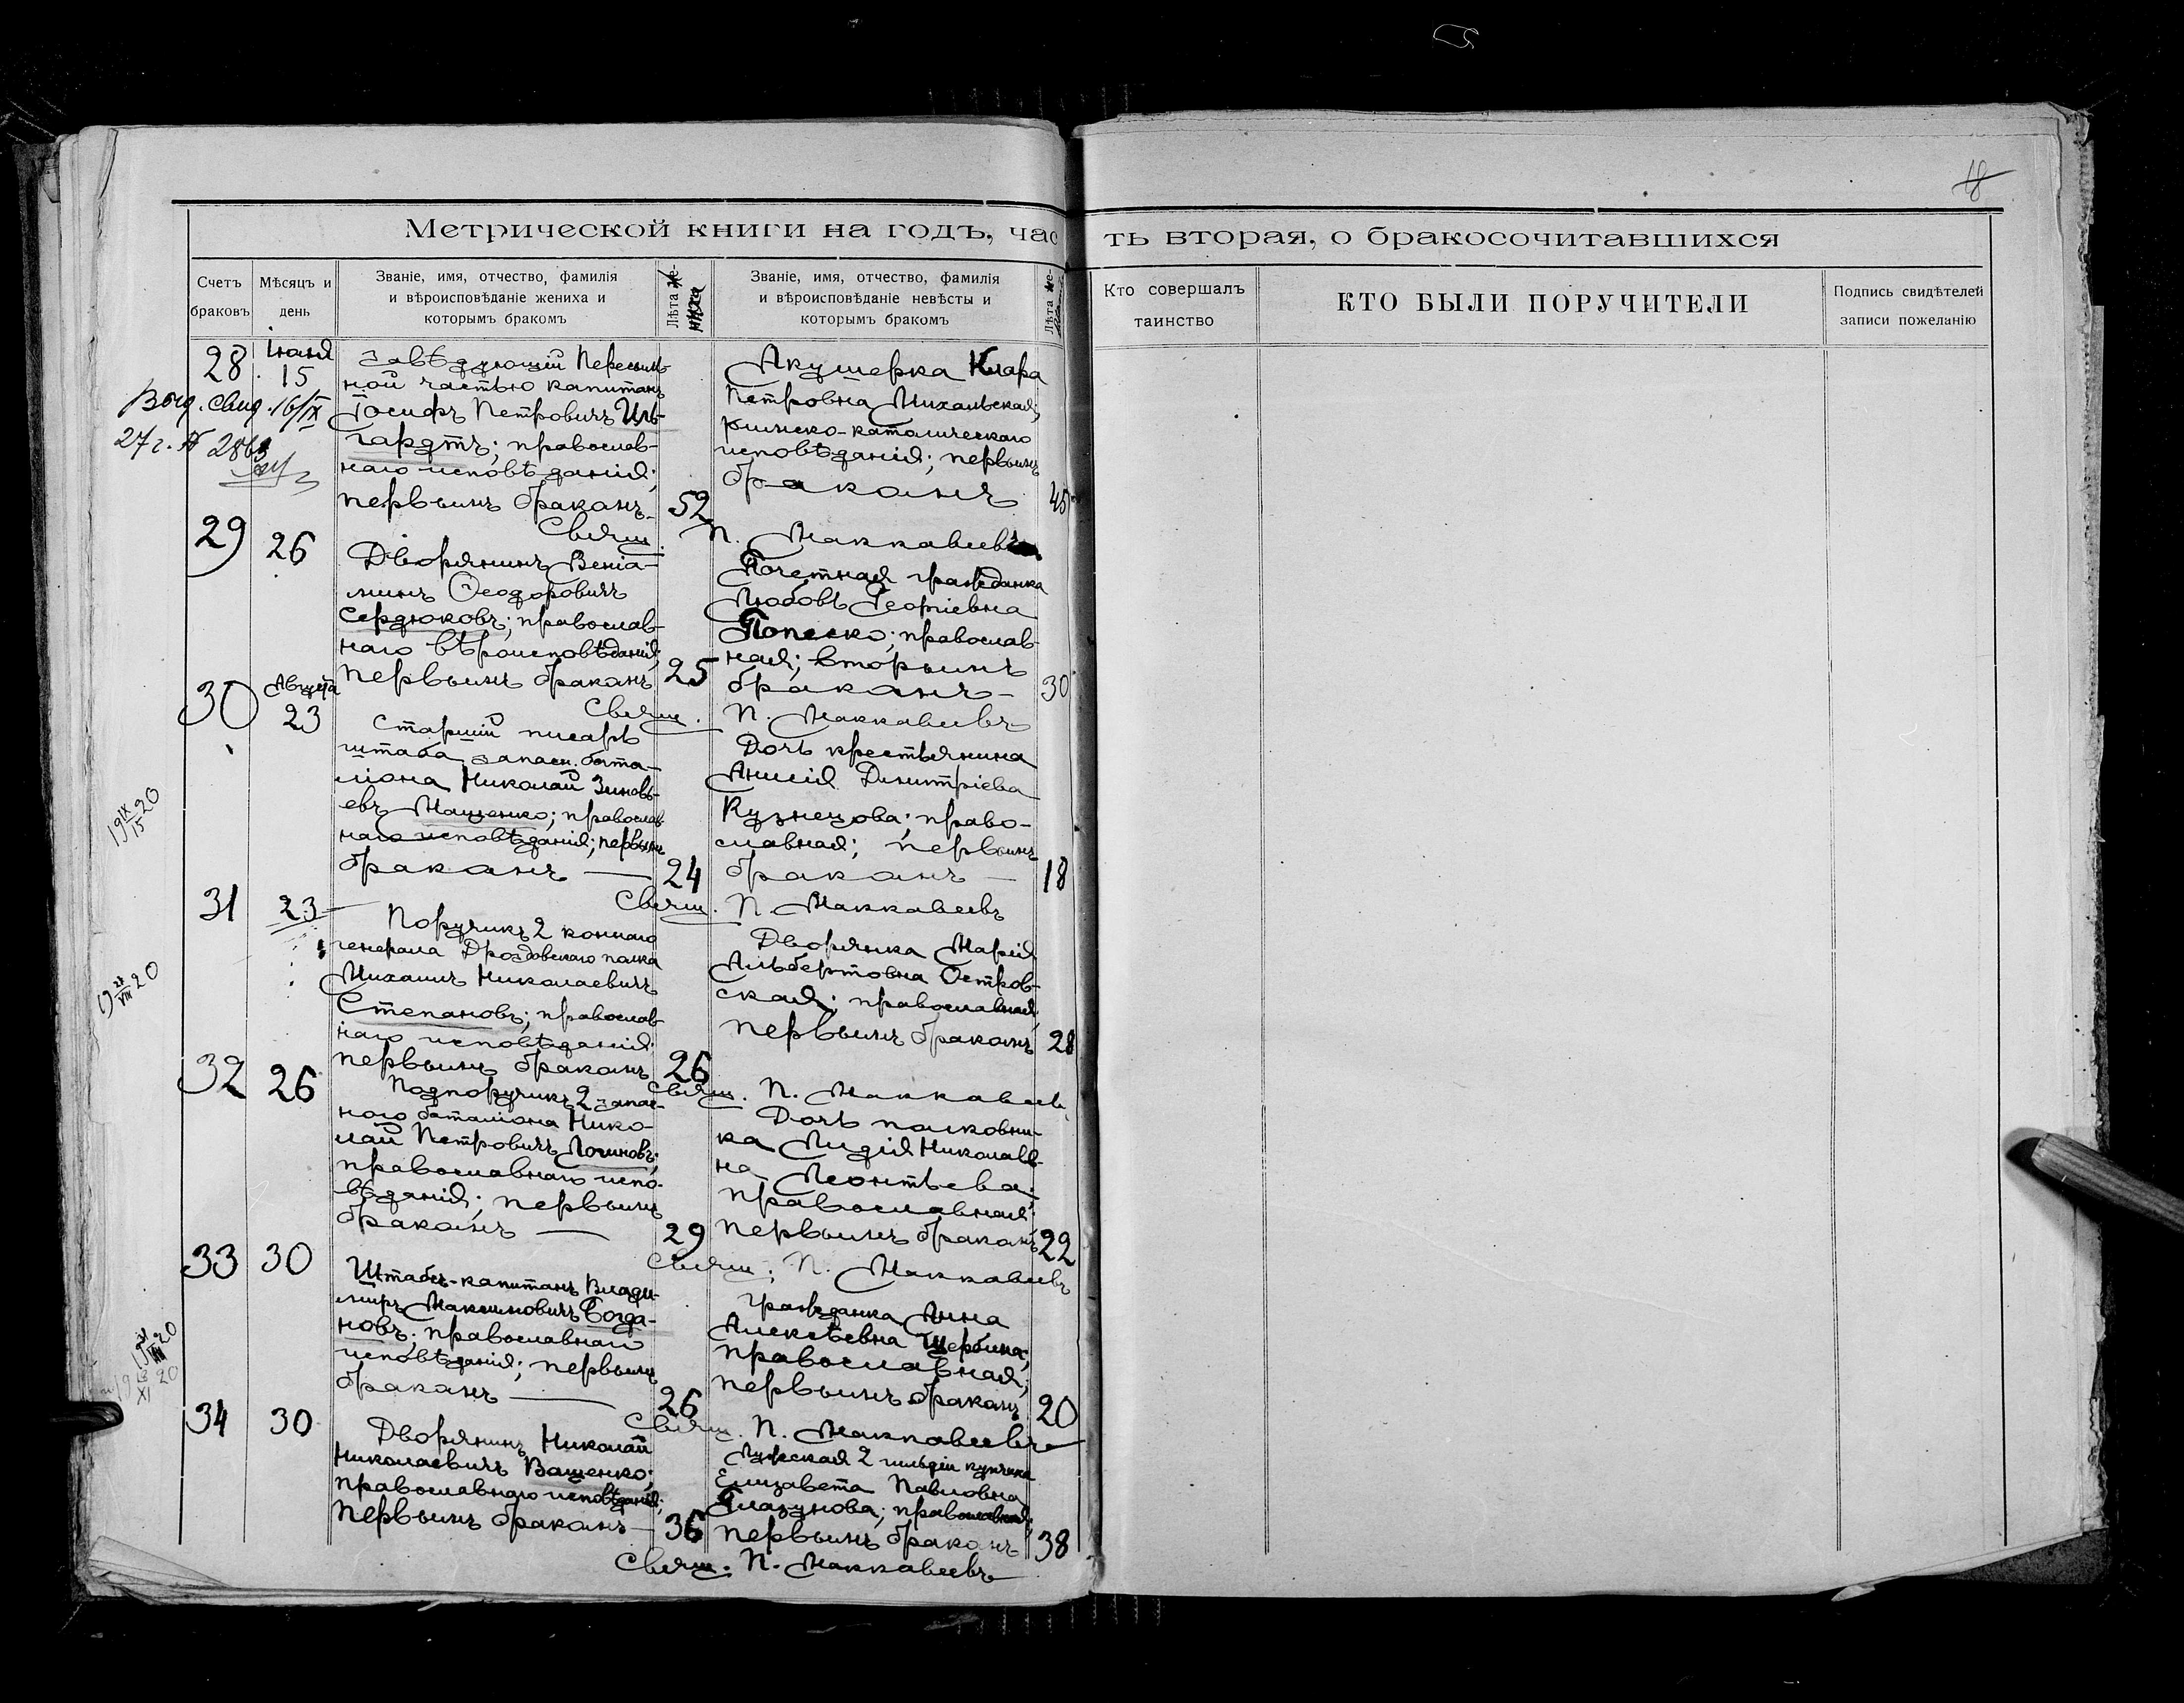 18
Метрической книги на годъ, часть вторая, о бракосочитавшихся
Счетъ браковъ
Мѣсяцъ и день
Званіе, имя, отчество, фамилія
и вѣроисповѣданіе жениха и
которымъ бракомъ
Лѣта жениха
Званіе, имя, отчество, фамилія
и вѣроисповѣданіе невѣсты и
которымъ бракомъ
Лѣта не-
Кто совершалъ
таинство
КТО БЫЛИ ПОРУЧИТЕЛИ
Подпись свидѣтелей
записи пожеланію
28
Іюня
15
Выд. свид. 16/IX
27 г. №
Завѣдующій
ной частью капитанъ
Іосифъ Петровичъ Иль-
гардтъ; православ-
наго исповѣданія;
первымъ бракомъ
52
Акушерка Клара
Петровна Михальская;
римско-католическаго
исповѣданія; первымъ
бракомъ
45
Свящ. П. Маккавеевъ
29
26
Дворянинъ Веніа-
минъ Ѳеодоровичъ
Сердюковъ; православ-
наго вѣроисповѣданія;
первымъ бракомъ
25
Почетная гражданка
Любовь Георгіевна
Попеско; православ-
ная; вторымъ
бракомъ —
30
Свящ. П. Маккавеевъ
30
Августа
23
Старшій писарь
штаба запасн. бата-
ліона Николай Зиновь-
евъ Мащенко; православ-
наго исповѣданія; первымъ
бракомъ —
24
Дочь крестьянина
Анисія Димитріева
Кузнецова; право-
славная; первымъ
бракомъ —
18
Свящ. П. Маккавеевъ
19 IX/15 20
31
23
Поручикъ 2 коннаго
генерала Дроздовскаго полка
Михаилъ Николаевичъ
Степановъ; православ-
наго исповѣданія;
первымъ бракомъ
26
Дворянка Марія
Альбертовна Остров-
ская; православная;
первымъ бракомъ
28
Свящ. П. Маккавеев
32
26
Подпоручикъ 2 запас-
ного баталіона Нико-
лай Петровичъ Логиновъ;
православнаго испо-
вѣданія; первымъ
бракомъ —
29
Дочь полковни-
ка Лидія Николаев-
на Леонтьева;
православная;
первымъ бракомъ
22
Свящ. П. Маккавеевъ
33
30
Штабсъ-капитанъ Влади-
миръ Максимовичъ Богда-
новъ; православнаго
исповѣданія; первымъ
бракомъ —
26
Гражданка Анна
Алексѣевна Щербина;
православная;
первымъ бракомъ
20
Свящ. П. Маккавеевъ
34
30
Дворянинъ Николай
Николаевичъ Ващенко;
православнаго исповѣданія;
первымъ бракомъ —
36
Лужская 2 гильдіи купчиха
Елизавета Павловна
Глазунова; православная;
первымъ бракомъ
38
Свящ. П. Маккавеевъ